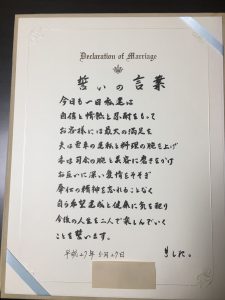 Declaration of Marriage
誓いの言葉
今日も一日私達は
自信と情熱と忍耐をもって
お客様には最大の満足を
夫は電車の運転と料理の腕を上げ
未は司会の腕と美容に磨きをかけ
お互いに深い愛情をそそぎ
奉仕の精神を忘れることなく
自ら希望達成と健康に気を配り
今後の人生を二人で楽しんでいく
ことを誓います。
平成27年 5月27日
ました。